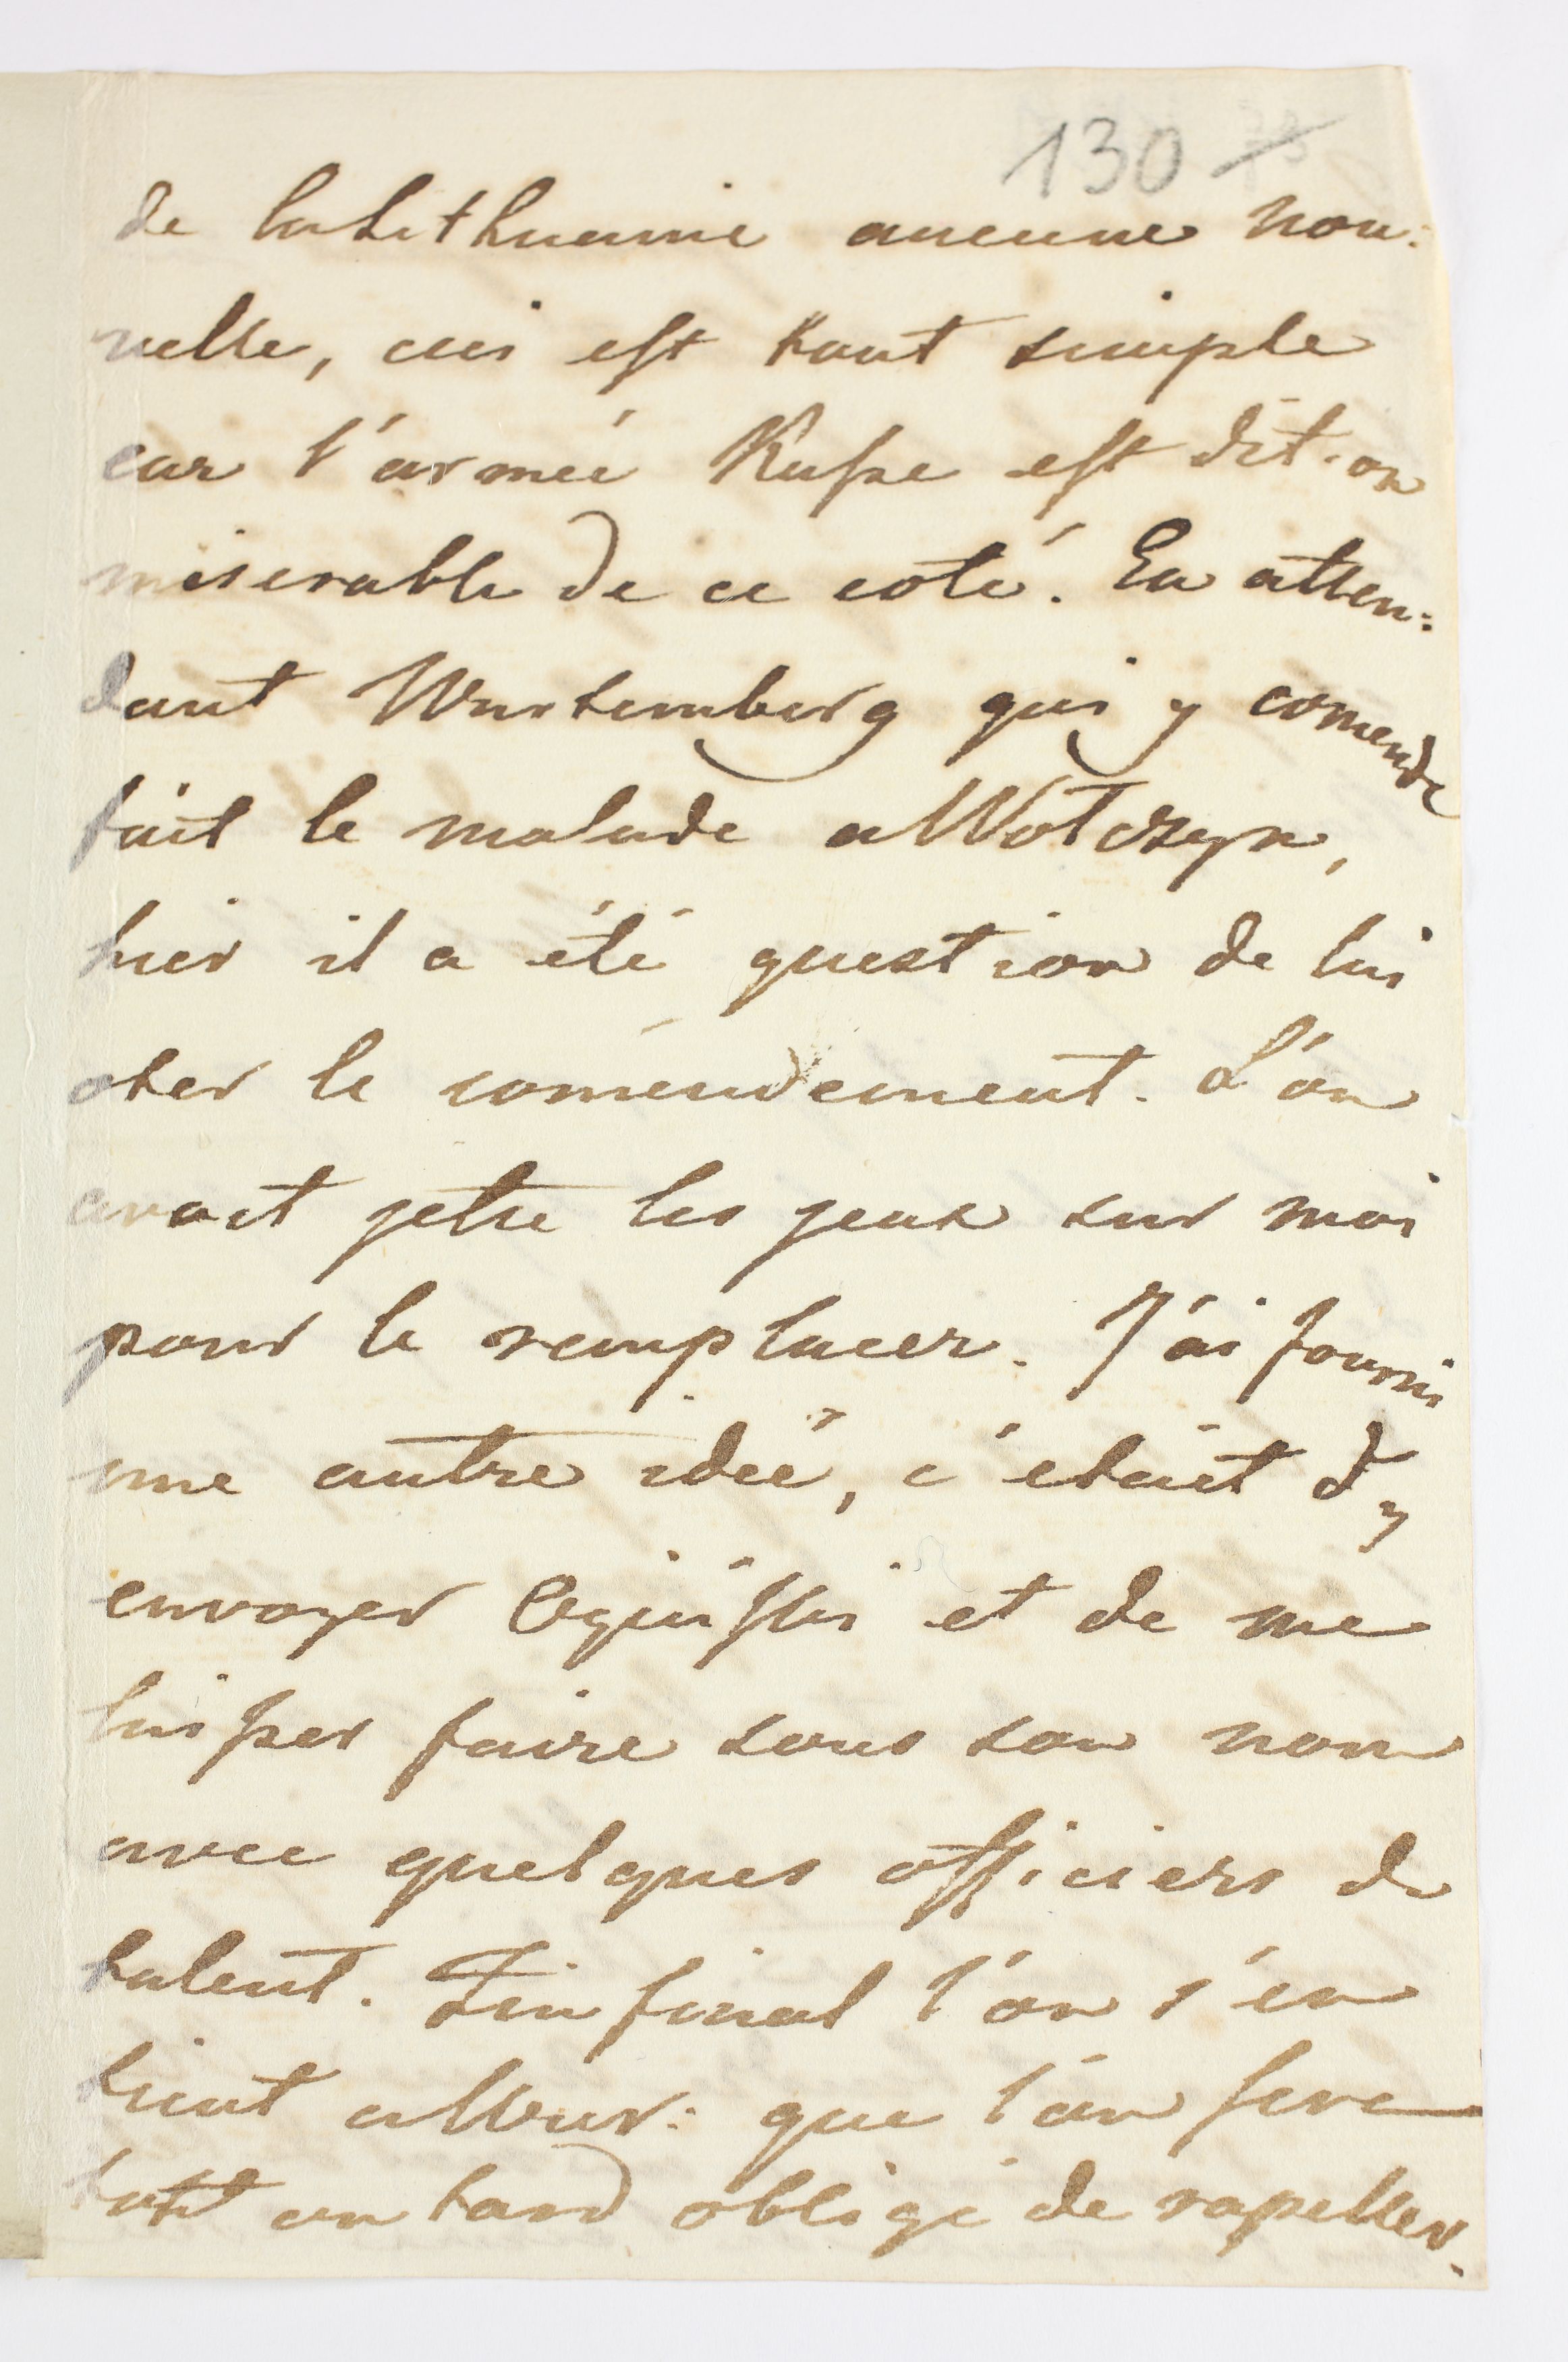 130 78
de la Lithuanie aucune nou:
velle, ceci est tout simple
car l'armeé Russe est dit-on
miserable de ce coté. En atten:
dant Wurtemberg qui y comende
fait le malade a Wolczyn,
hier il a été question de lui
oter le comendement. L'on
avait jettè les yeux sur moi
pour le remplacer. J'ai fourni
une autre idée, c'etait d'y
envoyer Oginski et de me
laisser faire sous son nom
avec quelques officiers de
talent. Fin final l'on s'en
tient a Wur: que l'on sera
tot ou tard obligé de rapeller.